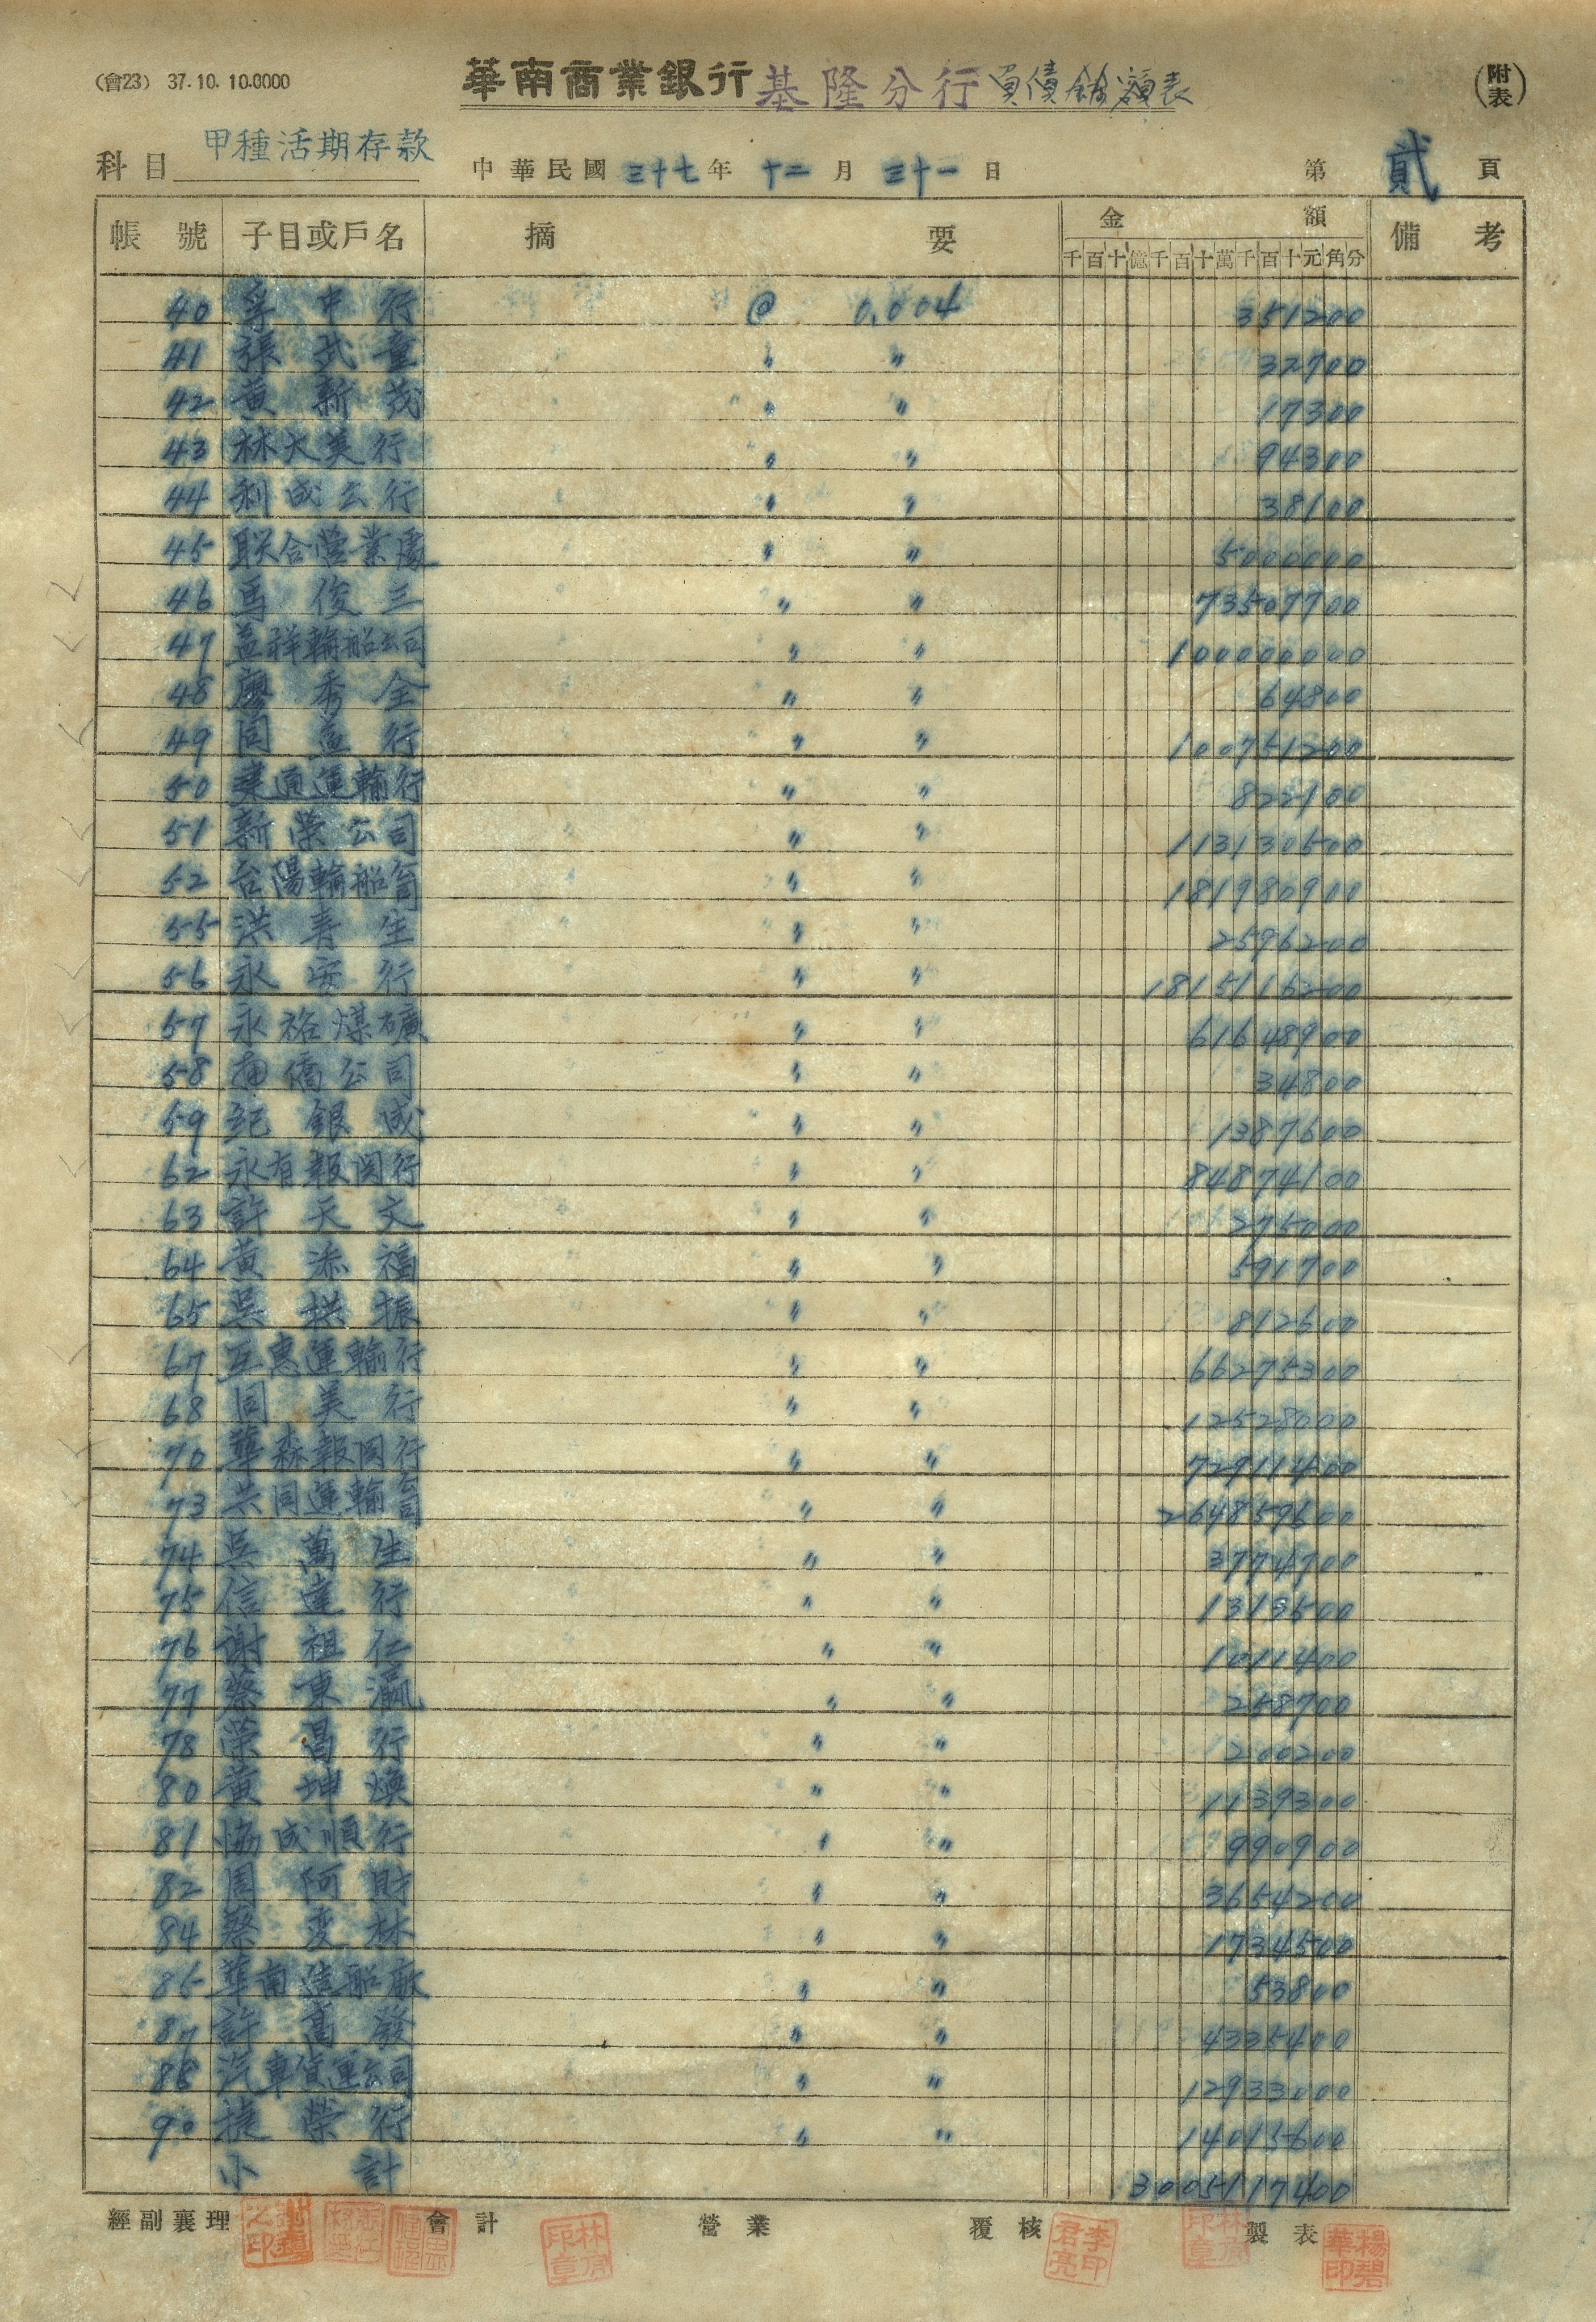 (會23) 37.10.10.0000
華南商業銀行 基隆分行 負債餘額表
(附表)
科目 甲種活期存款 中華民國 三十七 年 十二 月 三十一 日 第 貳 頁
帳號 子目或戶名 摘要 金額 備考
千百十億千百十萬千百十元角分
40 孚中行 @ 0.004 351200
41 張武童 〃 〃 32700
42 黃新茂 〃 〃 17300
43 林大美行 〃 〃 94300
44 利成公行 〃 〃 38100
45 联合營業處 〃 〃 5000000
46 馬俊三 〃 〃 73507700
47 益祥輪船公司 〃 〃 100000000
48 廖秀全 〃 〃 64800
49 同益行 〃 〃 100751200
50 建通運輸行 〃 〃 822100
51 新榮公司 〃 〃 113130500
52 台陽輪船公司 〃 〃 181980900
55 洪春生 〃 〃 2596200
56 永安行 〃 〃 1815116200
57 永裕煤礦 〃 〃 61648900
58 僑公司 〃 〃 34800
59 紀銀成 〃 〃 1387600
62 永有報関行 〃 〃 84874100
63 許天文 〃 〃 275000
64 黃添福 〃 〃 591700
65 吳拱振 〃 〃 812600
67 互惠運輸行 〃 〃 66275300
68 同美行 〃 〃 12528000
70 華森報関行 〃 〃 72911400
73 共同運輸公司 〃 〃 264859600
74 吳萬生 〃 〃 3774700
75 信達行 〃 〃 1313500
76 謝祖仁 〃 〃 1011400
77 蔡東瀛 〃 〃 258700
78 榮昌行 〃 〃 200200
80 黃坤煥 〃 〃 1139300
81 協成順行 〃 〃 990900
82 周阿財 〃 〃 3654200
84 蔡変林 〃 〃 1734500
85 華南造船廠 〃 〃 53800
87 許萬發 〃 〃 4335400
88 汽車貨運公司 〃 〃 12933000
90 捷榮行 〃 〃 14013600
小計 3005117400
經副襄理 會計 營業 覆核 製表
李君亮印
楊碧華印